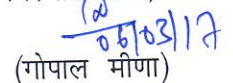 06/03/17
(गोपाल मीणा)